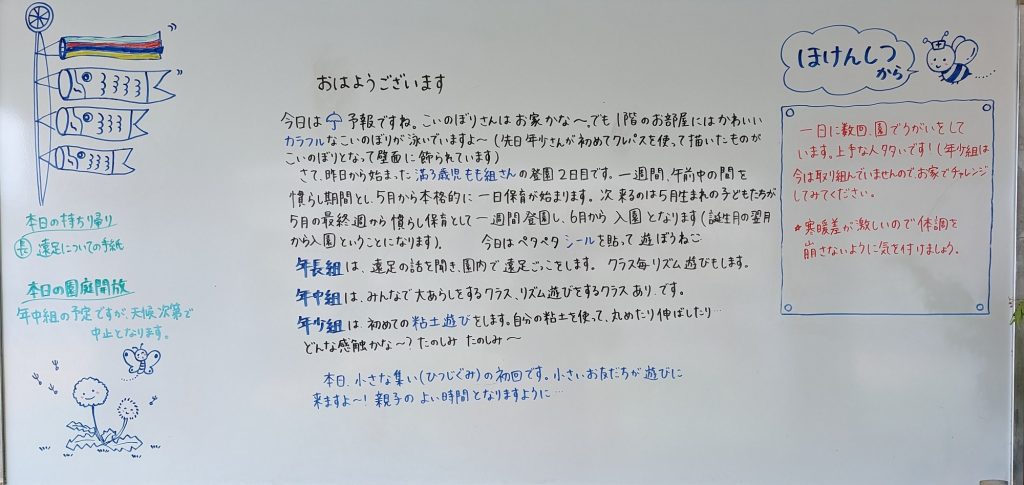 おはようございます
今日は 予報ですね。こいのぼりさんは お家かな～。でも 1階のお部屋にはかわいい
カラフルなこいのぼりが 泳いでいますよ～(先日 年少さんが 初めてクレパスを使って描いたものが
こいのぼりとなって壁面に飾られています)
さて、昨日から始まった 満3歳児 もも組さんの登園2日目です。一週間、午前中の間を
慣らし期間とし、5月から本格的に 一日保育が始まります。次来るのは5月生まれの子どもたちが
5月の最終週から慣らし保育として一週間登園し、6月から 入園となります(誕生月の翌月
から入園ということになります)。 今日はペタペタ シールを貼って遊ぼうね
年長組は、遠足の話を聞き、園内で遠足ごっこをします。クラス毎リズム遊びもします。
年中組は、みんなで大あらしをするクラス、リズム遊びをするクラスあり、です。
年少組は、初めての粘土遊びをします。自分の粘土を使って、丸めたり伸ばしたり…
どんな感触かな～?たのしみ たのしみ～
本日、小さな集い(ひつじぐみ)の初回です。小さいお友だちが遊びに
来ますよ～!親子の よい時間となりますように…
本日の持ち帰り
長 遠足についての手紙
本日の園庭開放
年中組の予定ですが、天候次第で
中止となります。
ほけんしつ
から
一日に数回、園でうがいをして
います。上手な人タタいです!(年少組は
今は取り組んでいませんので、お家でチャレンジ
してみてください。
*寒暖差が激しいので体調を
崩さないように気を付けましょう。